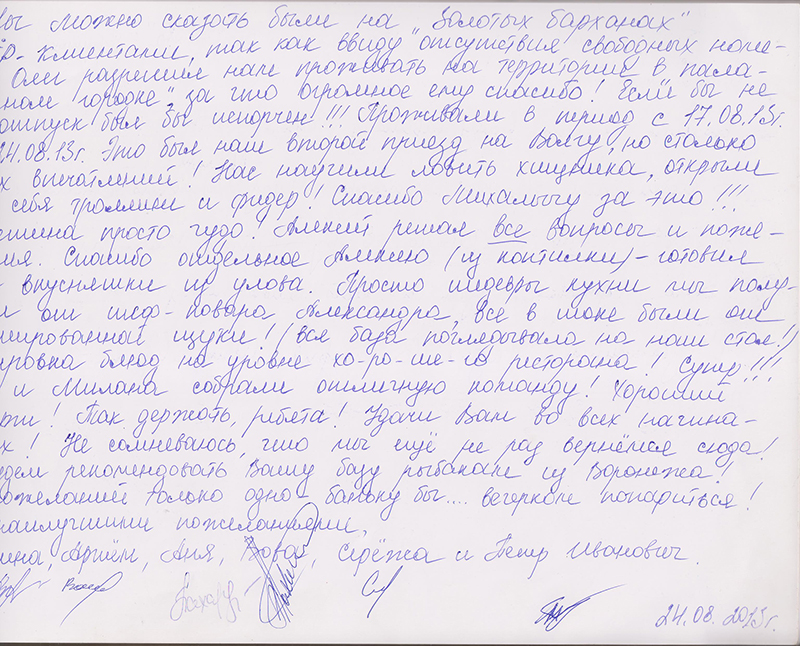 Мы можно сказать были на "Золотых барханах"
клиентами, так как ввиду "отсутствия свободных номе-
Олег разрешил нам проживать на территории в пала-
ном городке", за что огромное ему спасибо! Если бы не
отпуск был бы испорчен!!! Проживали в период с 17.08.13г.
24.08.13г. Это был наш второй приезд на Волгу, но столько
х впечатлений! Нас научили ловить хищника, открыли
себя троллинг и фидер! Спасибо Михалычу за это!!!
просто чудо! Алексей решал все вопросы и поже-
ия. Спасибо отдельное Алексею (из коптилки) - готовил
вкусняшки из улова. Просто шедевры кухни мы полу-
и от шеф-повара Александра, все в шоке были от
шированной щуки! (вся база поглядывала на наш стол!)
ровка блюд на уровне хо-ро-ше-го ресторана! Супер!!!
и Милана собрали отличную команду! Хороший
Так держать, ребята! Удачи Вам во всех начина-
х! Не сомневаюсь, что мы ещё не раз вернёмся сюда!
дем рекомендовать Вашу базу рыбакам из Воронежа!
пожеланий только одно - баньку бы.... вечерком попариться!
наилучшими пожеланиями,
ина, Артём, Аня, Вова, Серёжа и Петр Иванович.
24.08.2013г.